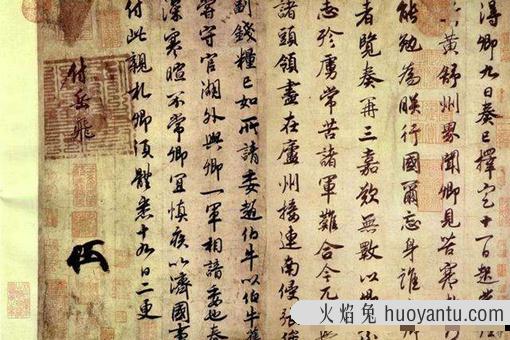 得卿九日奏已擇定十一日起發往
黃舒州界聞卿見苦寒嗽
能勉為朕行國爾忘身誰
者覽奏再三嘉歎無斁以卿
志殄虜常苦諸軍難合今兀
諸頭領盡在廬州接連南侵張俊
副錢糧已如所請委趙伯牛以伯牛舊
嘗守官湖外與卿一軍相諳委也春
深寒暄不常卿宜慎疾以濟國事
付此親札卿須體悉十九日二更
付岳飛
火焰兔
huoyantu.com